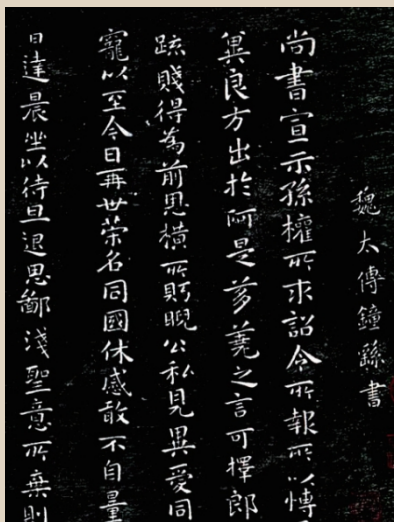 魏太傅鐘繇書
尚書宣示孫權所求詔令所報所以博
冀良方出於阿是芻蕘之言可擇郎
疏賤得為前恩橫所眄睨公私見異愛同
寵以至今日再世榮名同國休慼敢不自量
日達晨坐以待旦退思鄙淺聖意所棄則